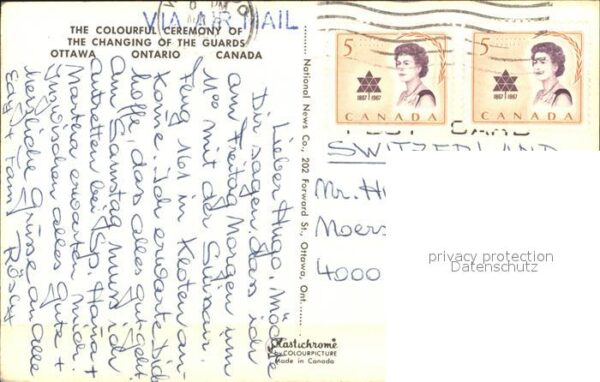 VIA AIR MAIL
THE COLOURFUL CEREMONY OF
THE CHANGING OF THE GUARDS
OTTAWA ONTARIO CANADA
5
1867 1967
CANADA
5
1867 1967
CANADA
POST CARD
SWITZERLAND
Mr. H
Moers
4000
privacy protection
Datenschutz
National News Co., 202 Forward St., Ottawa, Ont.
Plastichrome
by COLOURPICTURE
Made in Canada
Lieber Hugo, Möchte
Dir sagen, dass ich
am Freitag Morgen um
mit der Swissair
Flug 161 in Kloten an-
komme. Ich erwarte Dich
hoffe, dass alles gut geht.
Am Samstag muss ich
antreten bei Hanna +
Martha erwarten mich.
Inzwischen alles Gute +
herzliche Grüsse an alle
Edgy + Fam. Rösly